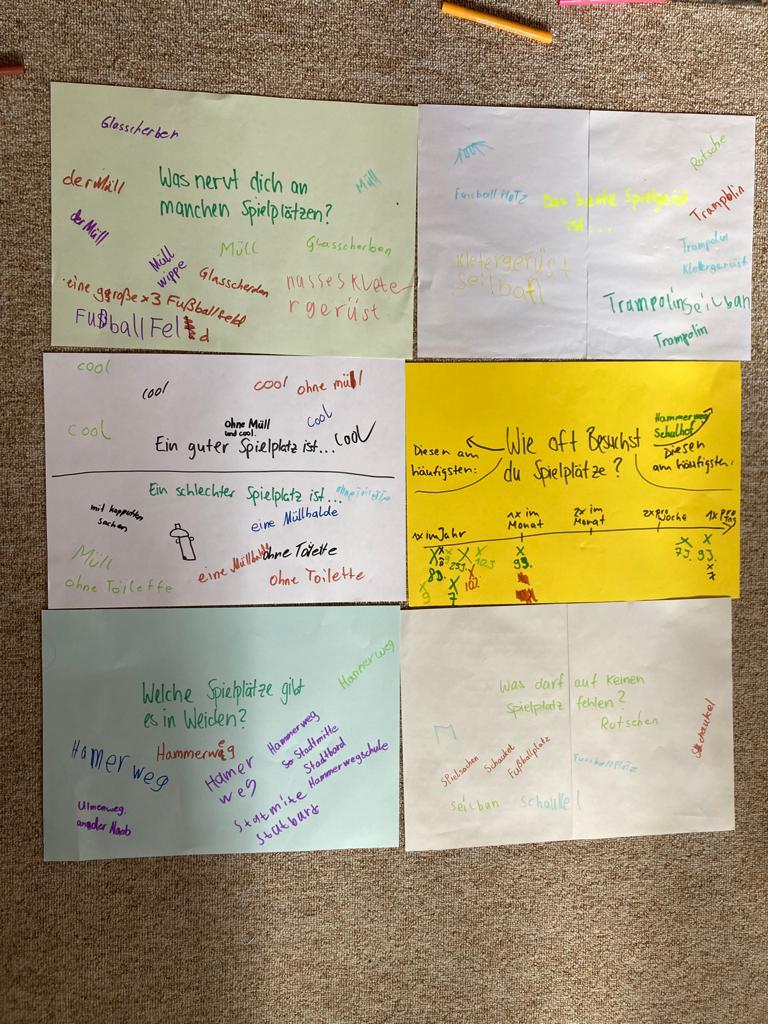 Glasscherben
der Müll
Was nervt dich an
manchen Spielplätzen?
Müll
der Müll
Müll
wippe
Müll
Glasscherben
Glasscherben
nasses Klete-
rgerüst
eine ggroße x3 Fußballfeld
Fußball Fel d
Rutsche
Fussball PlaTZ
Das beste Spielgerät
ist...
Trampolin
Trampolin
Kletergerüst
Kletergerüst
Seilbafl
Trampolin
Seilban
Trampolin
cool
cool
cool ohne müll
cool
cool
ohne Müll
und cool.
Ein guter Spielplatz ist... cool
Ein schlechter Spielplatz ist...
mit kapputten
sachen
eine Müllhalde
Müll
eine Müllhalde
ohne Toilette
ohne Toilette
ohne Toilette
Wie oft Besuchst
du Spielplätze?
Diesen am
häufigsten:
Hammerweg
Schulhof
Diesen
am häufigsten:
1x im Jahr
1x im
Monat
2x im
Monat
2x pro Woche
1x pro
Tag
X X X X X X
8J. 9J. 10J. 9J. 7J. 9J.
X X X
9 7 10J. 7
Hammerweg
Welche Spielplätze gibt
es in Weiden?
Hamerweg
Hammerweg
Hamer
weg
Hammerweg
so Stadtmitte
Stadtbad
Hammerwegschule
Ulmenweg,
an der Naab
Statmite
Statbart
Was darf auf keinen
Spielplatz fehlen?
Rutschen
Schaukel
Spielsachen
Schaukel
Fußballplatz
Fussballplatz
seilban
schaukel